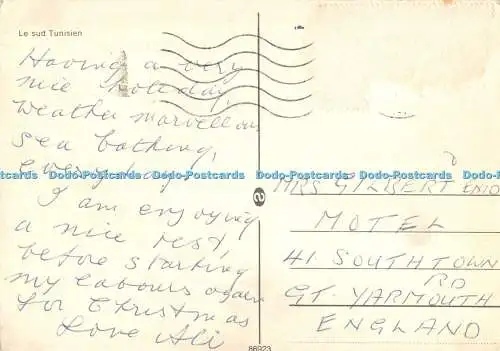 Le sud Tunisien
Having a very
nice holiday,
weather marvellous
sea bathing,
every day
I am enjoying
a nice rest,
before starting
my labours again
for Christmas
Love Ali
MRS GILBERT ENID
MOTEL
41 SOUTHTOWN
RD
GT. YARMOUTH
ENGLAND
Dodo-Postcards Dodo-Postcards Dodo-Postcards Dodo-Postcards Dodo-Postcards
Dodo-Postcards Dodo-Postcards Dodo-Postcards Dodo-Postcards Dodo-Postcards
86923